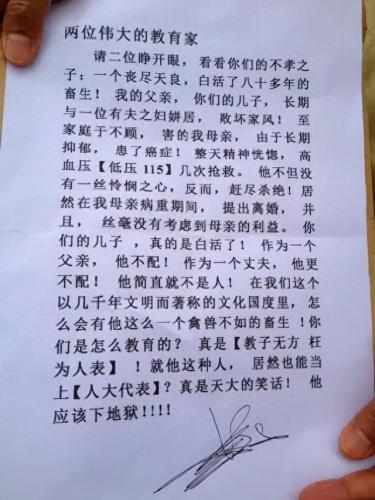 两位伟大的教育家
请二位睁开眼，看看你们的不孝之
子：一个丧尽天良，白活了八十多年的
畜生！我的父亲，你们的儿子，长期
与一位有夫之妇姘居，败坏家风！至
家庭于不顾，害的我母亲，由于长期
抑郁，患了癌症！整天精神恍惚，高
血压【低压 115】几次抢救。他不但没
有一丝怜悯之心，反而，赶尽杀绝！居
然在我母亲病重期间，提出离婚，并
且，丝毫没有考虑到母亲的利益。你
们的儿子，真的是白活了！作为一个
父亲，他不配！作为一个丈夫，他更
不配！他简直就不是人！在我们这个
以几千年文明而著称的文化国度里，怎
么会有他这么一个禽兽不如的畜生！你
们是怎么教育的？真是【教子无方 枉
为人表】！就他这种人，居然也能当
上【人大代表】？真是天大的笑话！他
应该下地狱!!!!